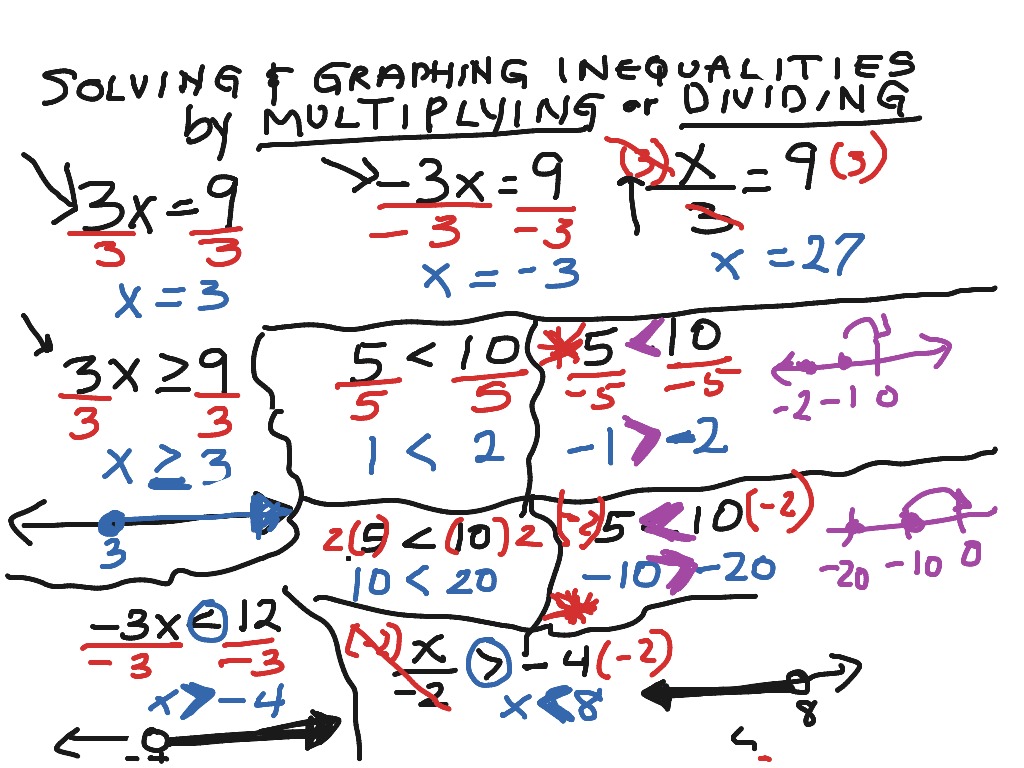 SOLVING & GRAPHING INEQUALITIES
by MULTIPLYING or DIVIDING
3x = 9
3 3
x = 3
-3x = 9
-3 -3
x = -3
(3) x = 9 (3)
3
x = 27
3x ≥ 9
3 3
x ≥ 3
3
5 < 10
5 5
1 < 2
5 < 10
-5 -5
-1 > -2
-2 -1 0
2(5) < (10)2
10 < 20
(-2) 5 < 10 (-2)
-10 > -20
-20 -10 0
-3x < 12
-3 -3
x > -4
x > -4 (-2)
-2
x < 8
8